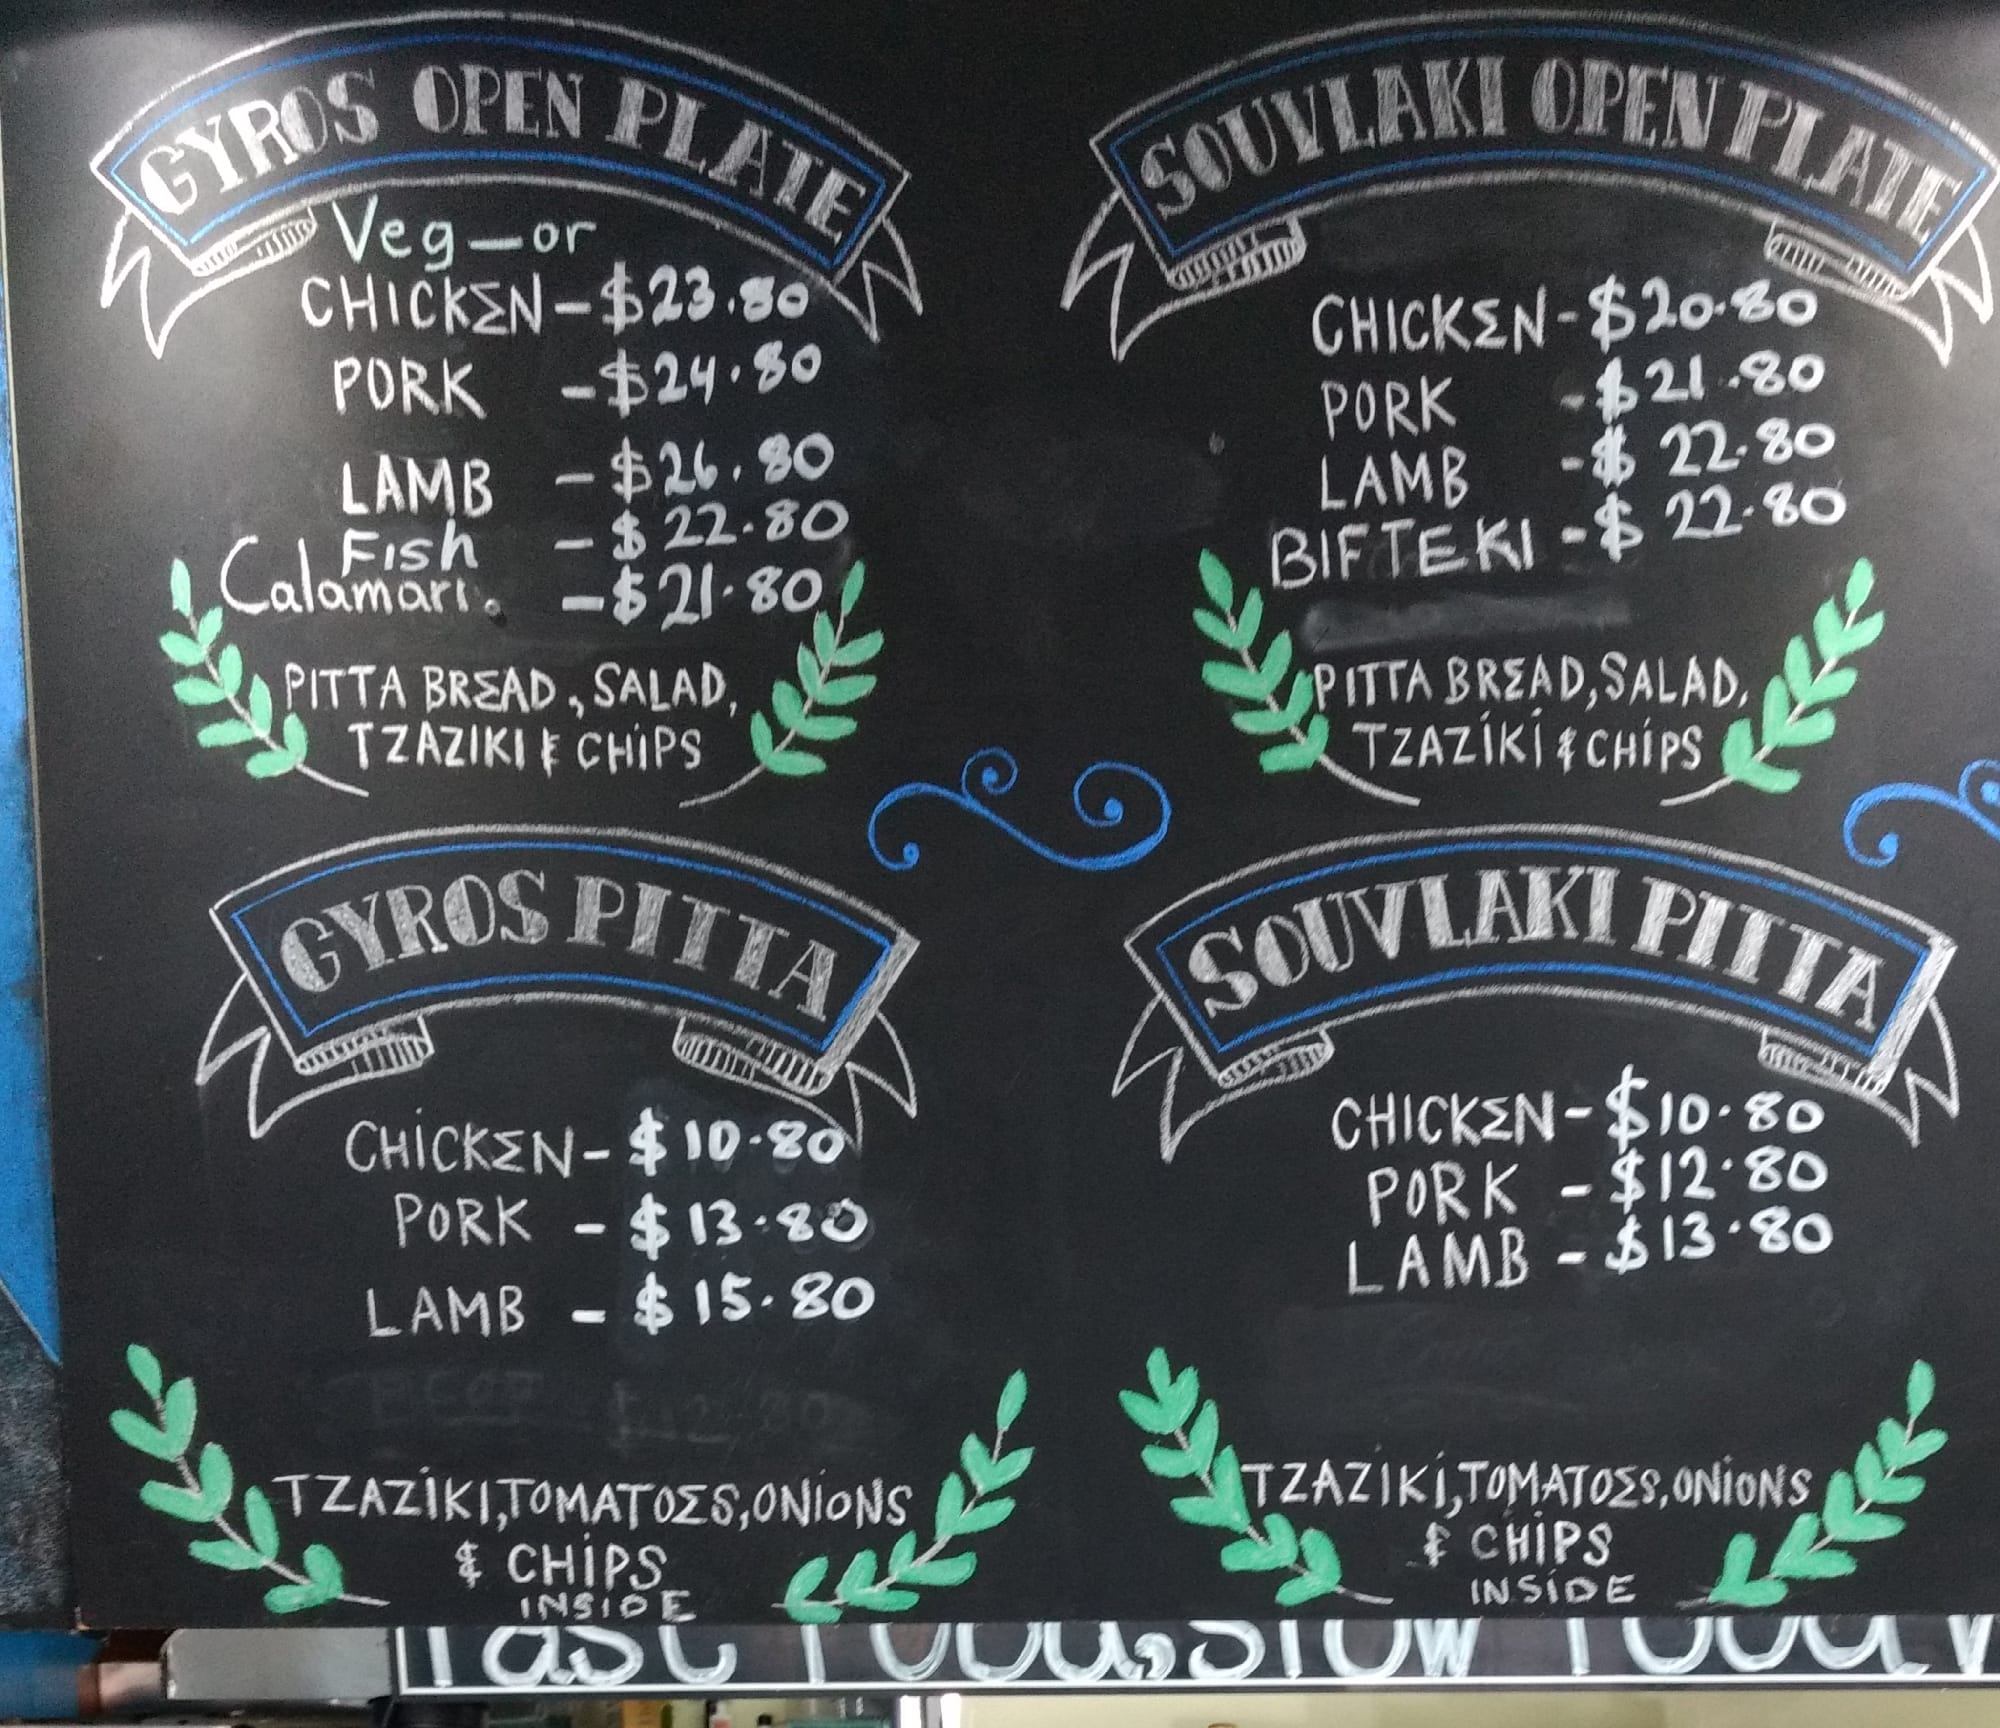 GYROS OPEN PLATE
Veg—or
CHICKΣN - $23.80
PORK - $24.80
LAMB - $26.80
Fish - $22.80
Calamari. - $21.80
PITTA BRΣAD, SALAD,
TZAZIKI & CHiPS
SOUVLAKI OPEN PLATE
CHICKΣN - $20.80
PORK - $21.80
LAMB - $22.80
BIFTEKI - $22.80
PITTA BRΣAD, SALAD,
TZAZiKi & CHiPS
GYROS PITTA
CHiCKΣN - $10.80
PORK - $13.80
LAMB - $15.80
TZAZiKI, TOMATOΣS, ONiONS
& CHiPS
INSIDE
SOUVLAKI PITTA
CHICKΣN - $10.80
PORK - $12.80
LAMB - $13.80
TZAZiKi, TOMATOΣS, ONiONS
& CHiPS
INSiDE
Fast Food, Slow Food